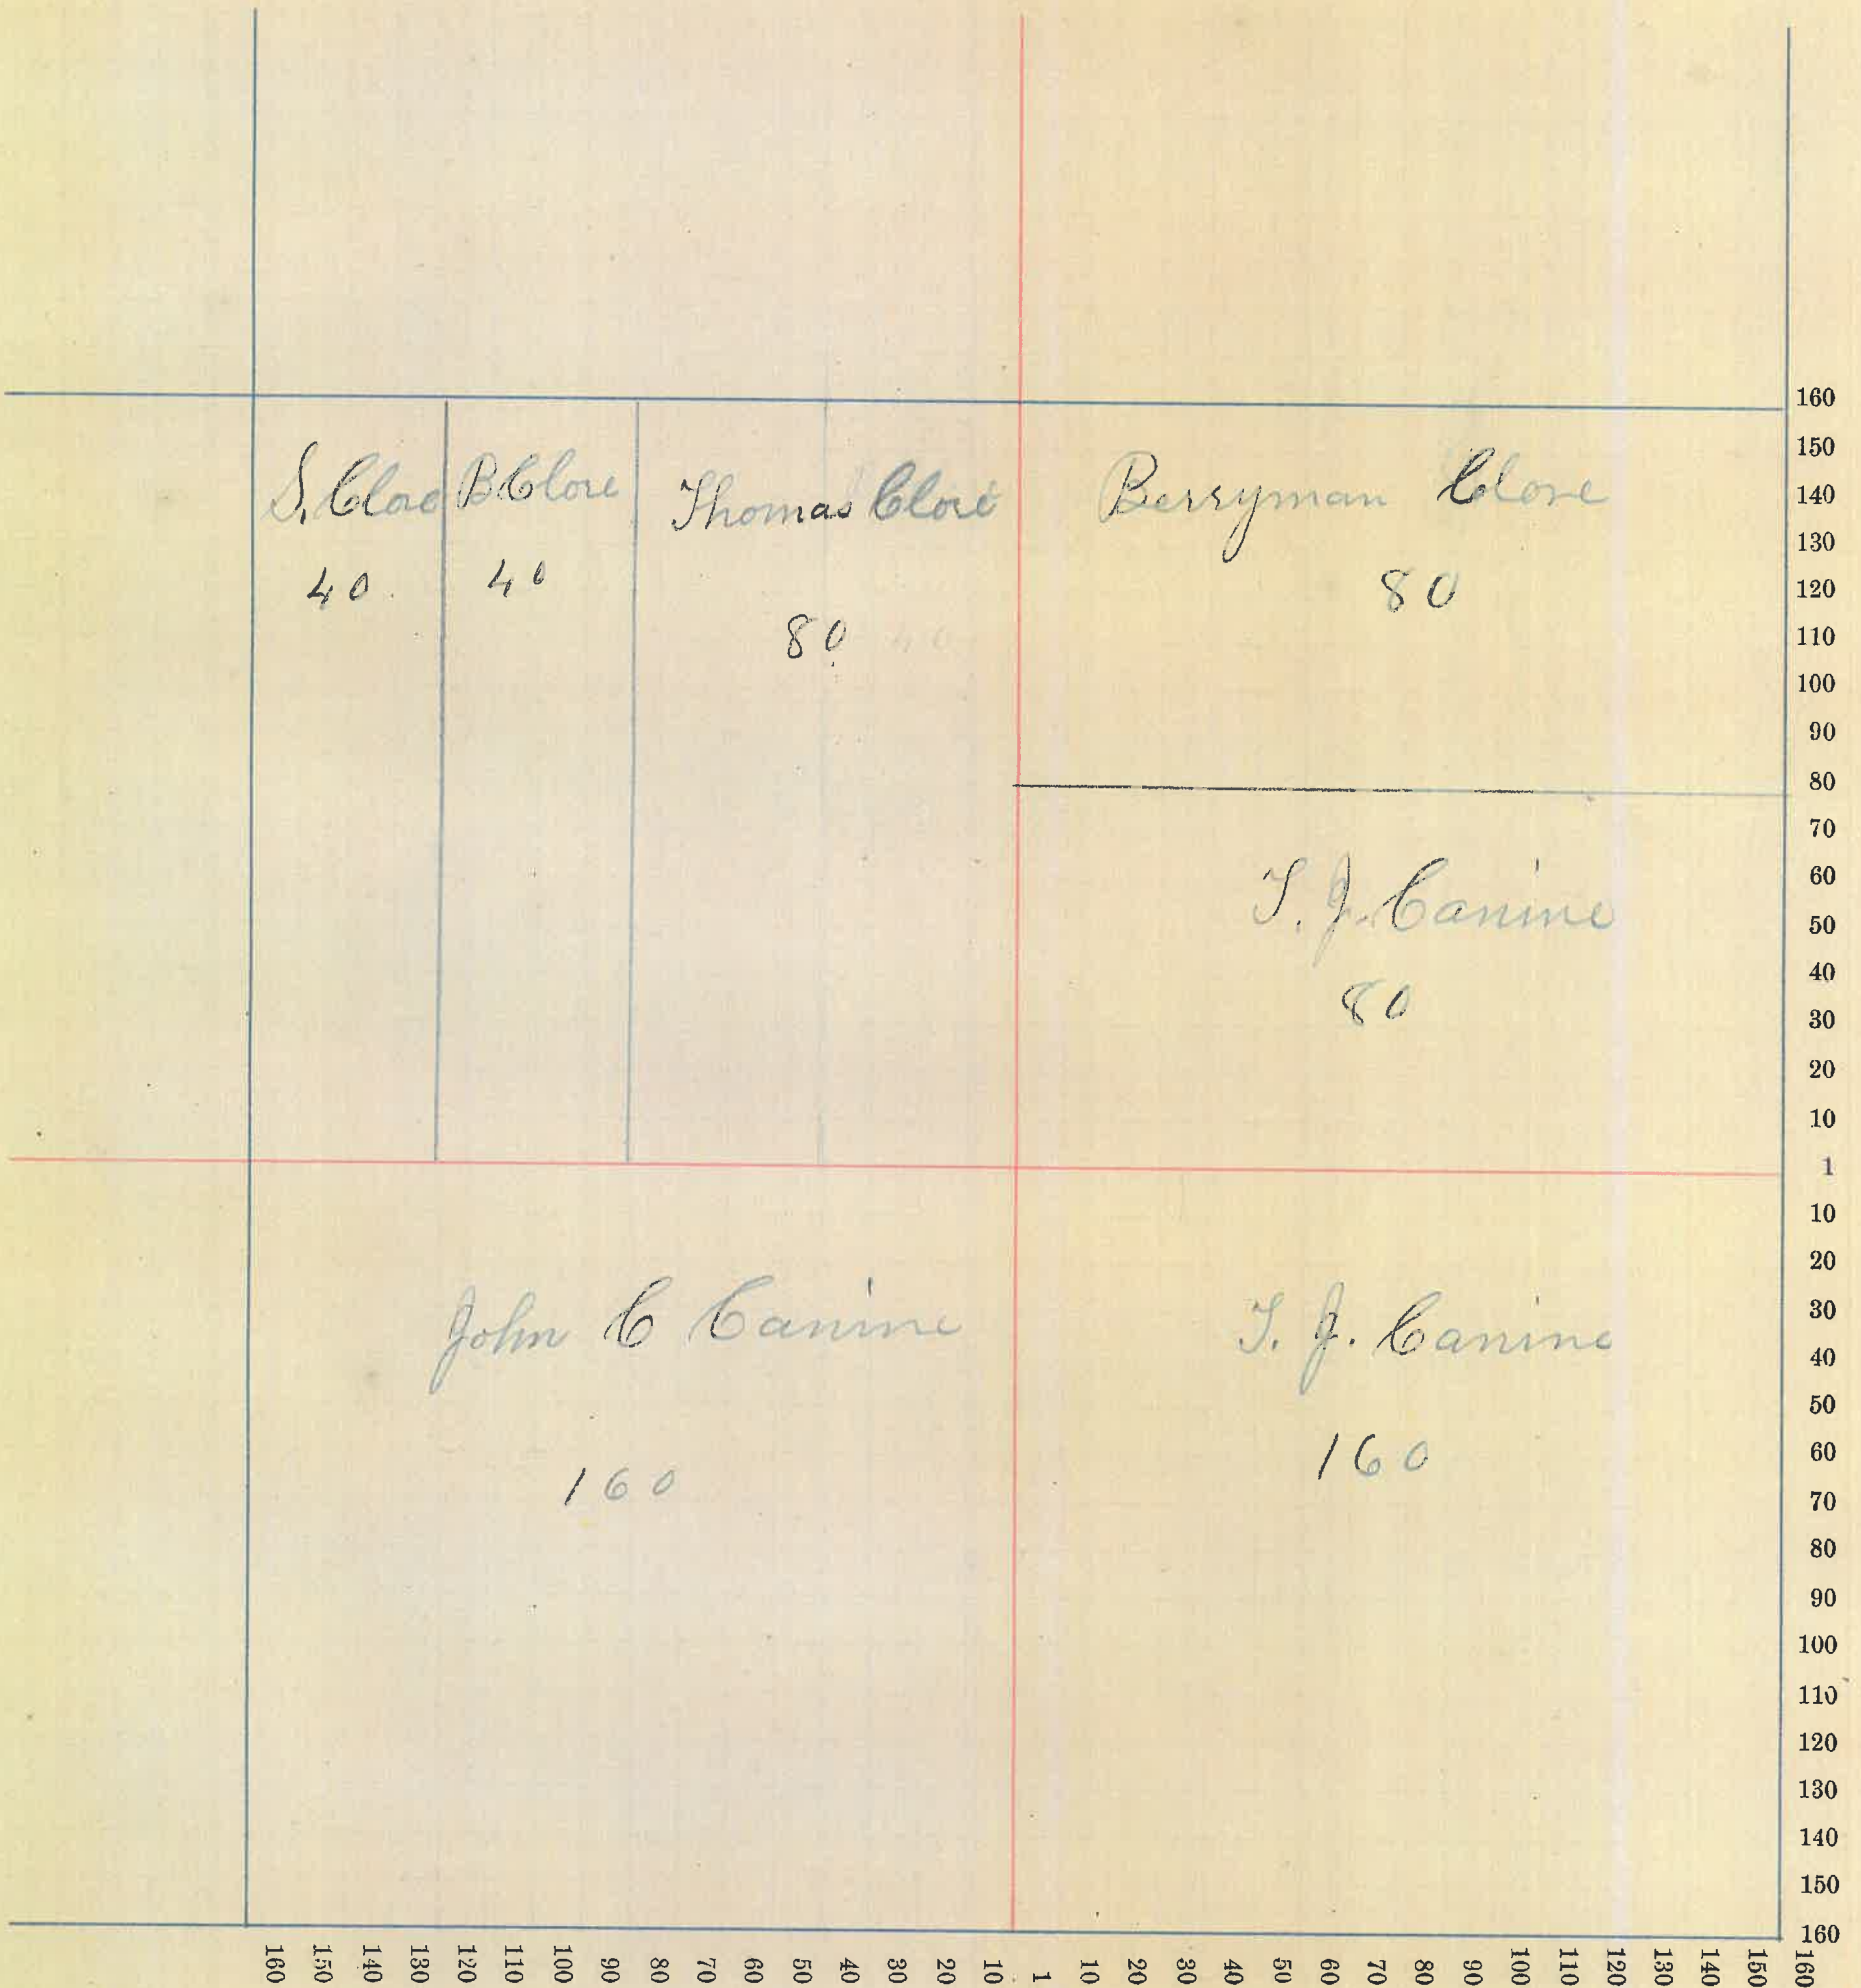 S. Clore
40.
B. Clore
40
Thomas Clore
80
40
Berryman Clore
80
T. J. Canine
80
John C Canine
160
T. J. Canine
160
160
150
140
130
120
110
100
90
80
70
60
50
40
30
20
10
1
10
20
30
40
50
60
70
80
90
100
110
120
130
140
150
160
160 150 140 130 120 110 100 90 80 70 60 50 40 30 20 10 1 10 20 30 40 50 60 70 80 90 100 110 120 130 140 150 160